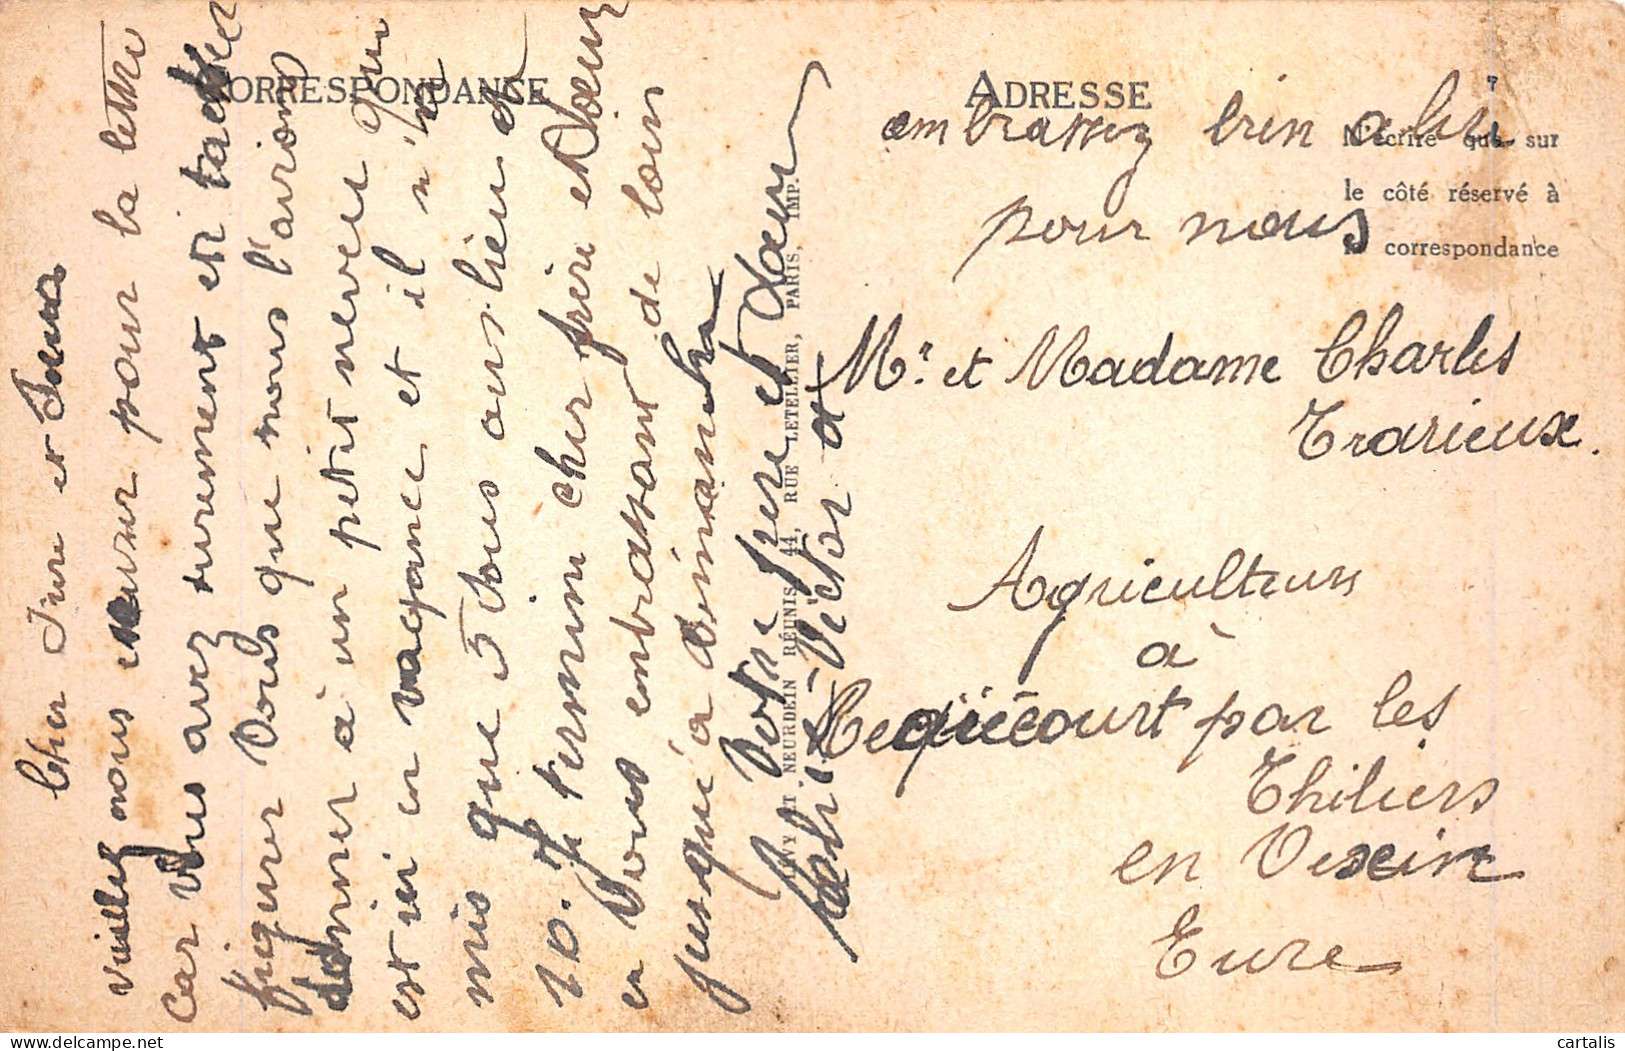 CORRESPONDANCE
Cher frère et Soeur
veuillez nous excuser pour la lettre
car vous avez surement été tacher
figurer vous que nous l'avions
donner à un petit neveu qui
est ici en vacance et il n'a
mis que 5 sous au lieu de
10. Je termine cher frère et Soeur
en vous embrassant de loin
jusqu'à Dimanche
Votre frère et Soeur
Victor
LEVY ET NEURDEIN RÉUNIS, 44, RUE LETELLIER, PARIS. IMP.
ADRESSE
N'écrire que sur
le côté réservé à
la correspondance
embrassez bien
pour nous
Mr. et Madame Charles
Trarieux.
Agriculteurs
à
Requiécourt par les
Thiliers
en Vexin
Eure
cartalis